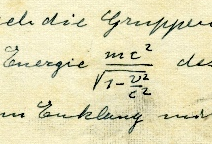 die Gruppen
Energie mc²/√(1-v²/c²) des
Einklang mit